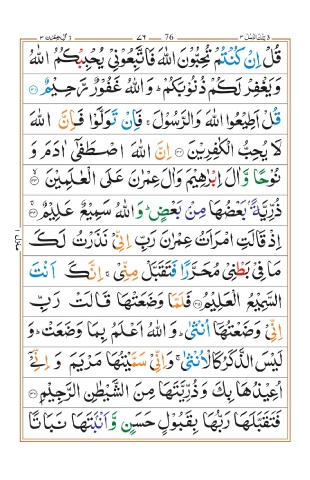 تلك الرسل ٣ ٧٦ 76 اٰل عمرٰن ٣
قُلْ اِنْ كُنْتُمْ تُحِبُّوْنَ اللّٰهَ فَاتَّبِعُوْنِيْ يُحْبِبْكُمُ اللّٰهُ
وَيَغْفِرْ لَكُمْ ذُنُوْبَكُمْ ؕ وَاللّٰهُ غَفُوْرٌ رَّحِيْمٌ ﴿۳۱﴾
قُلْ اَطِيْعُوا اللّٰهَ وَالرَّسُوْلَ ۚ فَاِنْ تَوَلَّوْا فَاِنَّ اللّٰهَ
لَا يُحِبُّ الْكٰفِرِيْنَ ﴿۳۲﴾ اِنَّ اللّٰهَ اصْطَفٰۤى اٰدَمَ وَ
نُوْحًا وَّاٰلَ اِبْرٰهِيْمَ وَاٰلَ عِمْرٰنَ عَلَى الْعٰلَمِيْنَ ﴿۳۳﴾
ذُرِّيَّةًۢ بَعْضُهَا مِنْۢ بَعْضٍ ؕ وَاللّٰهُ سَمِيْعٌ عَلِيْمٌ ﴿۳۴﴾
اِذْ قَالَتِ امْرَاَتُ عِمْرٰنَ رَبِّ اِنِّيْ نَذَرْتُ لَكَ
مَا فِيْ بَطْنِيْ مُحَرَّرًا فَتَقَبَّلْ مِنِّيْ ۚ اِنَّكَ اَنْتَ
السَّمِيْعُ الْعَلِيْمُ ﴿۳۵﴾ فَلَمَّا وَضَعَتْهَا قَالَتْ رَبِّ
اِنِّيْ وَضَعْتُهَاۤ اُنْثٰى ؕ وَاللّٰهُ اَعْلَمُ بِمَا وَضَعَتْ ؕ وَ
لَيْسَ الذَّكَرُ كَالْاُنْثٰى ۚ وَاِنِّيْ سَمَّيْتُهَا مَرْيَمَ وَاِنِّيْۤ
اُعِيْذُهَا بِكَ وَذُرِّيَّتَهَا مِنَ الشَّيْطٰنِ الرَّجِيْمِ ﴿۳۶﴾
فَتَقَبَّلَهَا رَبُّهَا بِقَبُوْلٍ حَسَنٍ وَّاَنْۢبَتَهَا نَبَاتًا
منزل ١